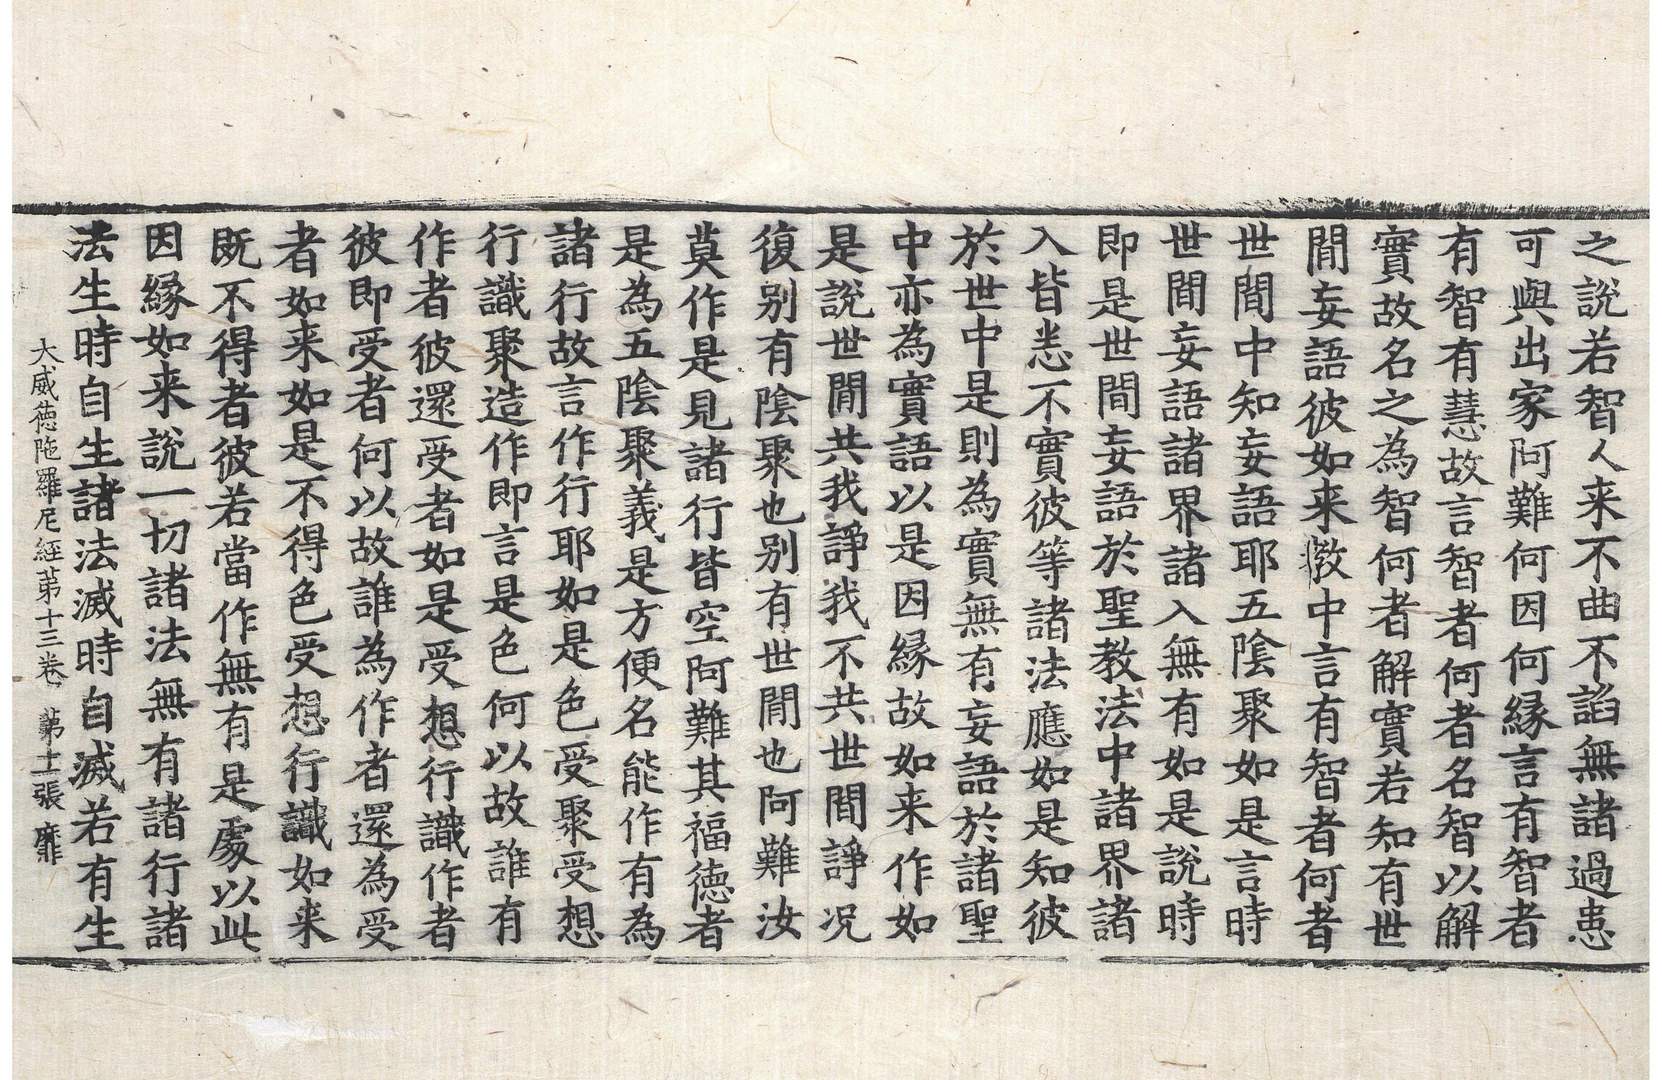 之說若智人来不曲不諂無諸過患
可與出家阿難何因何縁言有智者
有智有慧故言智者何者名智以解
實故名之為智何者解實若知有世
間妄語彼如来教中言有智者何者
世間中知妄語耶五陰聚如是言時
世間妄語諸界諸入無有如是說時
即是世間妄語於聖教法中諸界諸
入皆悉不實彼等諸法應如是知彼
於世中是則為實無有妄語於諸聖
中亦為實語以是因縁故如来作如
是說世間共我諍我不共世間諍况
復别有陰聚也别有世間也阿難汝
莫作是見諸行皆空阿難其福德者
是為五陰聚義是方便名能作有為
諸行故言作行耶如是色受聚受想
行識聚造作即言是色何以故誰有
作者彼還受者如是受想行識作者
彼即受者何以故誰為作者還為受
者如来如是不得色受想行識如来
既不得者彼若當作無有是處以此
因縁如来說一切諸法無有諸行諸
法生時自生諸法滅時自滅若有生
大威德陁羅尼經第十三卷 第十二張 靡